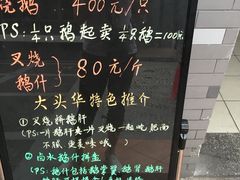 烧鹅 400元/只
PS:¼只鹅起卖 ¼只鹅=100元
叉烧
鹅什 } 80元/斤
大头华特色推介
① 叉烧拼鹅肝
(PS:一片鹅肝夹一片叉烧一起吃,肥而
不腻更美味哦)
② 卤水鹅什拼盘
(PS:鹅什包括鹅掌翼 鹅肾 鹅肝